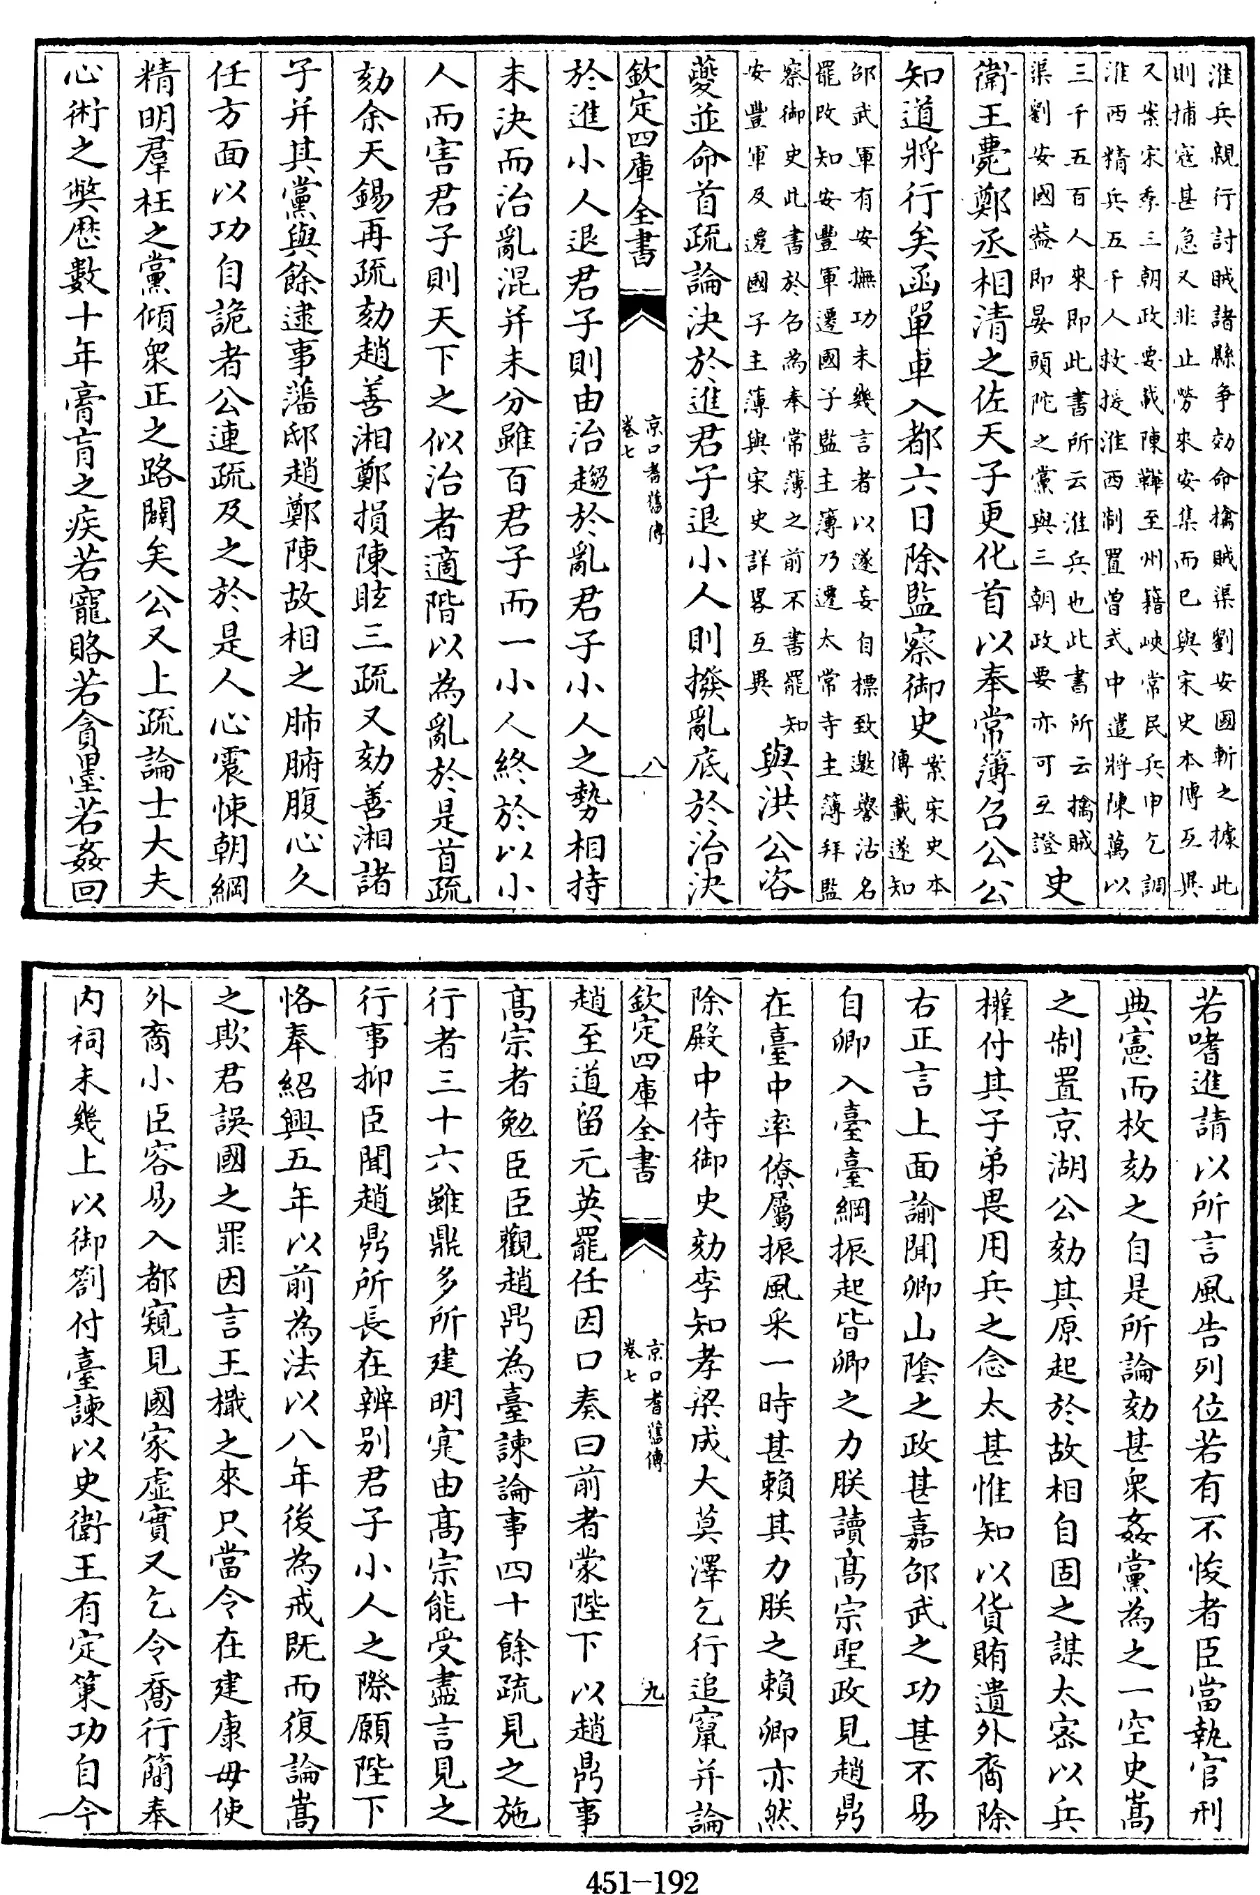 淮兵親行討賊諸縣争効命擒賊渠劉安國斬之據此
則捕寇甚急又非止勞來安集而已與宋史本傳互異
又案宋季三朝政要載陳韡至州籍峽常民兵申乞調
淮西精兵五千人救援淮西制置曽式中遣將陳萬以
三千五百人來即此書所云淮兵也此書所云擒賊
渠劉安國葢即晏頭陀之黨與三朝政要亦可互證
史
衛王薨鄭丞相清之佐天子更化首以奉常薄召公公
知道將行矣函單車入都六日除監察御史
案宋史本
傳載遂知
邵武軍有安撫功未幾言者以遂妄自標致邀譽沽名
罷改知安豐軍遷國子監主簿乃遷太常寺主薄拜監
察御史此書於召為奉常薄之前不書罷知
安豐軍及遷國子主薄與宋史詳畧互異
與洪公咨
夔並命首疏論決於進君子退小人則撥亂底於治決
欽定四庫全書
京口耆舊傳
卷七
八
於進小人退君子則由治趨於亂君子小人之勢相持
未決而治亂混并未分雖百君子而一小人終於以小
人而害君子則天下之似治者適階以為亂於是首疏
劾余天錫再疏劾趙善湘鄭損陳晐三疏又劾善湘諸
子并其黨與餘逮事藩邸趙鄭陳故相之肺腑腹心久
任方面以功自詭者公連疏及之於是人心震悚朝綱
精明羣枉之黨傾衆正之路闢矣公又上疏論士大夫
心術之獘歴數十年膏肓之疾若寵賂若貪墨若姦回
若嗜進請以所言風告列位若有不悛者臣當執官刑
典憲而枚劾之自是所論劾甚衆姦黨為之一空史嵩
之制置京湖公劾其原起於故相自固之謀太宻以兵
權付其子弟畏用兵之念太甚惟知以貨賄遺外裔除
右正言上面諭聞卿山隂之政甚嘉邵武之功甚不易
自卿入臺臺綱振起皆卿之力朕讀髙宗聖政見趙鼎
在臺中率僚屬振風采一時甚賴其力朕之賴卿亦然
除殿中侍御史劾李知孝梁成大莫澤乞行追竄并論
欽定四庫全書
京口耆舊傳
卷七
九
趙至道留元英罷任因口奏曰前者蒙陛下以趙鼎事
髙宗者勉臣臣觀趙鼎為臺諫論事四十餘疏見之施
行者三十六雖鼎多所建明寔由髙宗能受盡言見之
行事抑臣聞趙鼎所長在辨别君子小人之際願陛下
恪奉紹興五年以前為法以八年後為戒既而復論嵩
之欺君誤國之罪因言王檝之來只當令在建康毋使
外裔小臣容易入都窺見國家虚實又乞令喬行簡奉
内祠未幾上以御劄付臺諫以史衛王有定策功自今
451-192